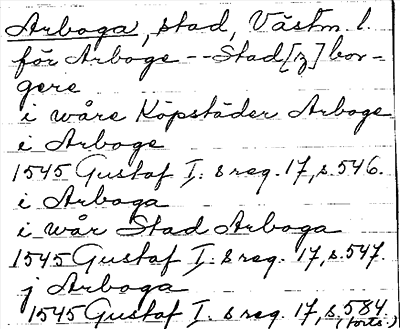 Arboga, stad, Västm. l.
för Arboge -- Stad[z] bor-
gere
i wåre Köpstäder Arboge
i Arboge
1545 Gustaf I: s reg. 17, s. 546.
i Arboga
i wår Stad Arboga
1545 Gustaf I: s reg. 17, s. 547.
j Arboga
1545 Gustaf I: s reg. 17, s. 584
(forts.)